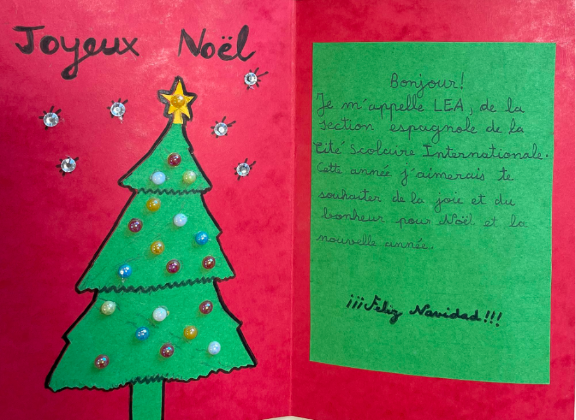 Joyeux Noël
Bonjour!
Je m'appelle LEA, de la
section espagnole de la
Cité Scolaire Internationale.
Cette année j'aimerais te
souhaiter de la joie et du
bonheur pour Noël et la
nouvelle année.
¡¡¡Feliz Navidad!!!